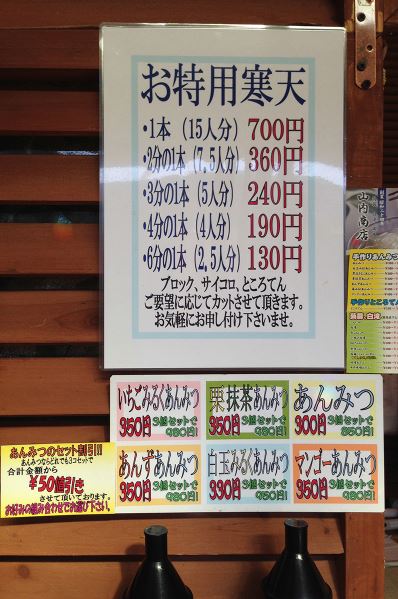 お特用寒天
・1本（15人分）700円
・2分の1本（7,5人分）360円
・3分の1本（5人分）240円
・4分の1本（4人分）190円
・6分の1本（2,5人分）130円
ブロック、サイコロ、ところてん
ご要望に応じてカットさせて頂きます。
お気軽にお申し付け下さいませ。
山内商店
手作りあんみつ
手作りところてん
いちごみるくあんみつ
350円 3個セットで
980円!
栗抹茶あんみつ
350円 3個セットで
980円!
あんみつ
300円 3個セットで
800円!
あんずあんみつ
350円 3個セットで
980円!
白玉みるくあんみつ
330円 3個セットで
950円!
マンゴーあんみつ
350円 3個セットで
980円!
あんみつのセット割引!!!
あんみつならどれでも3コセットで
合計金額から
￥50値引き
させて頂いております。
お好みの組み合わせでお選び下さい。